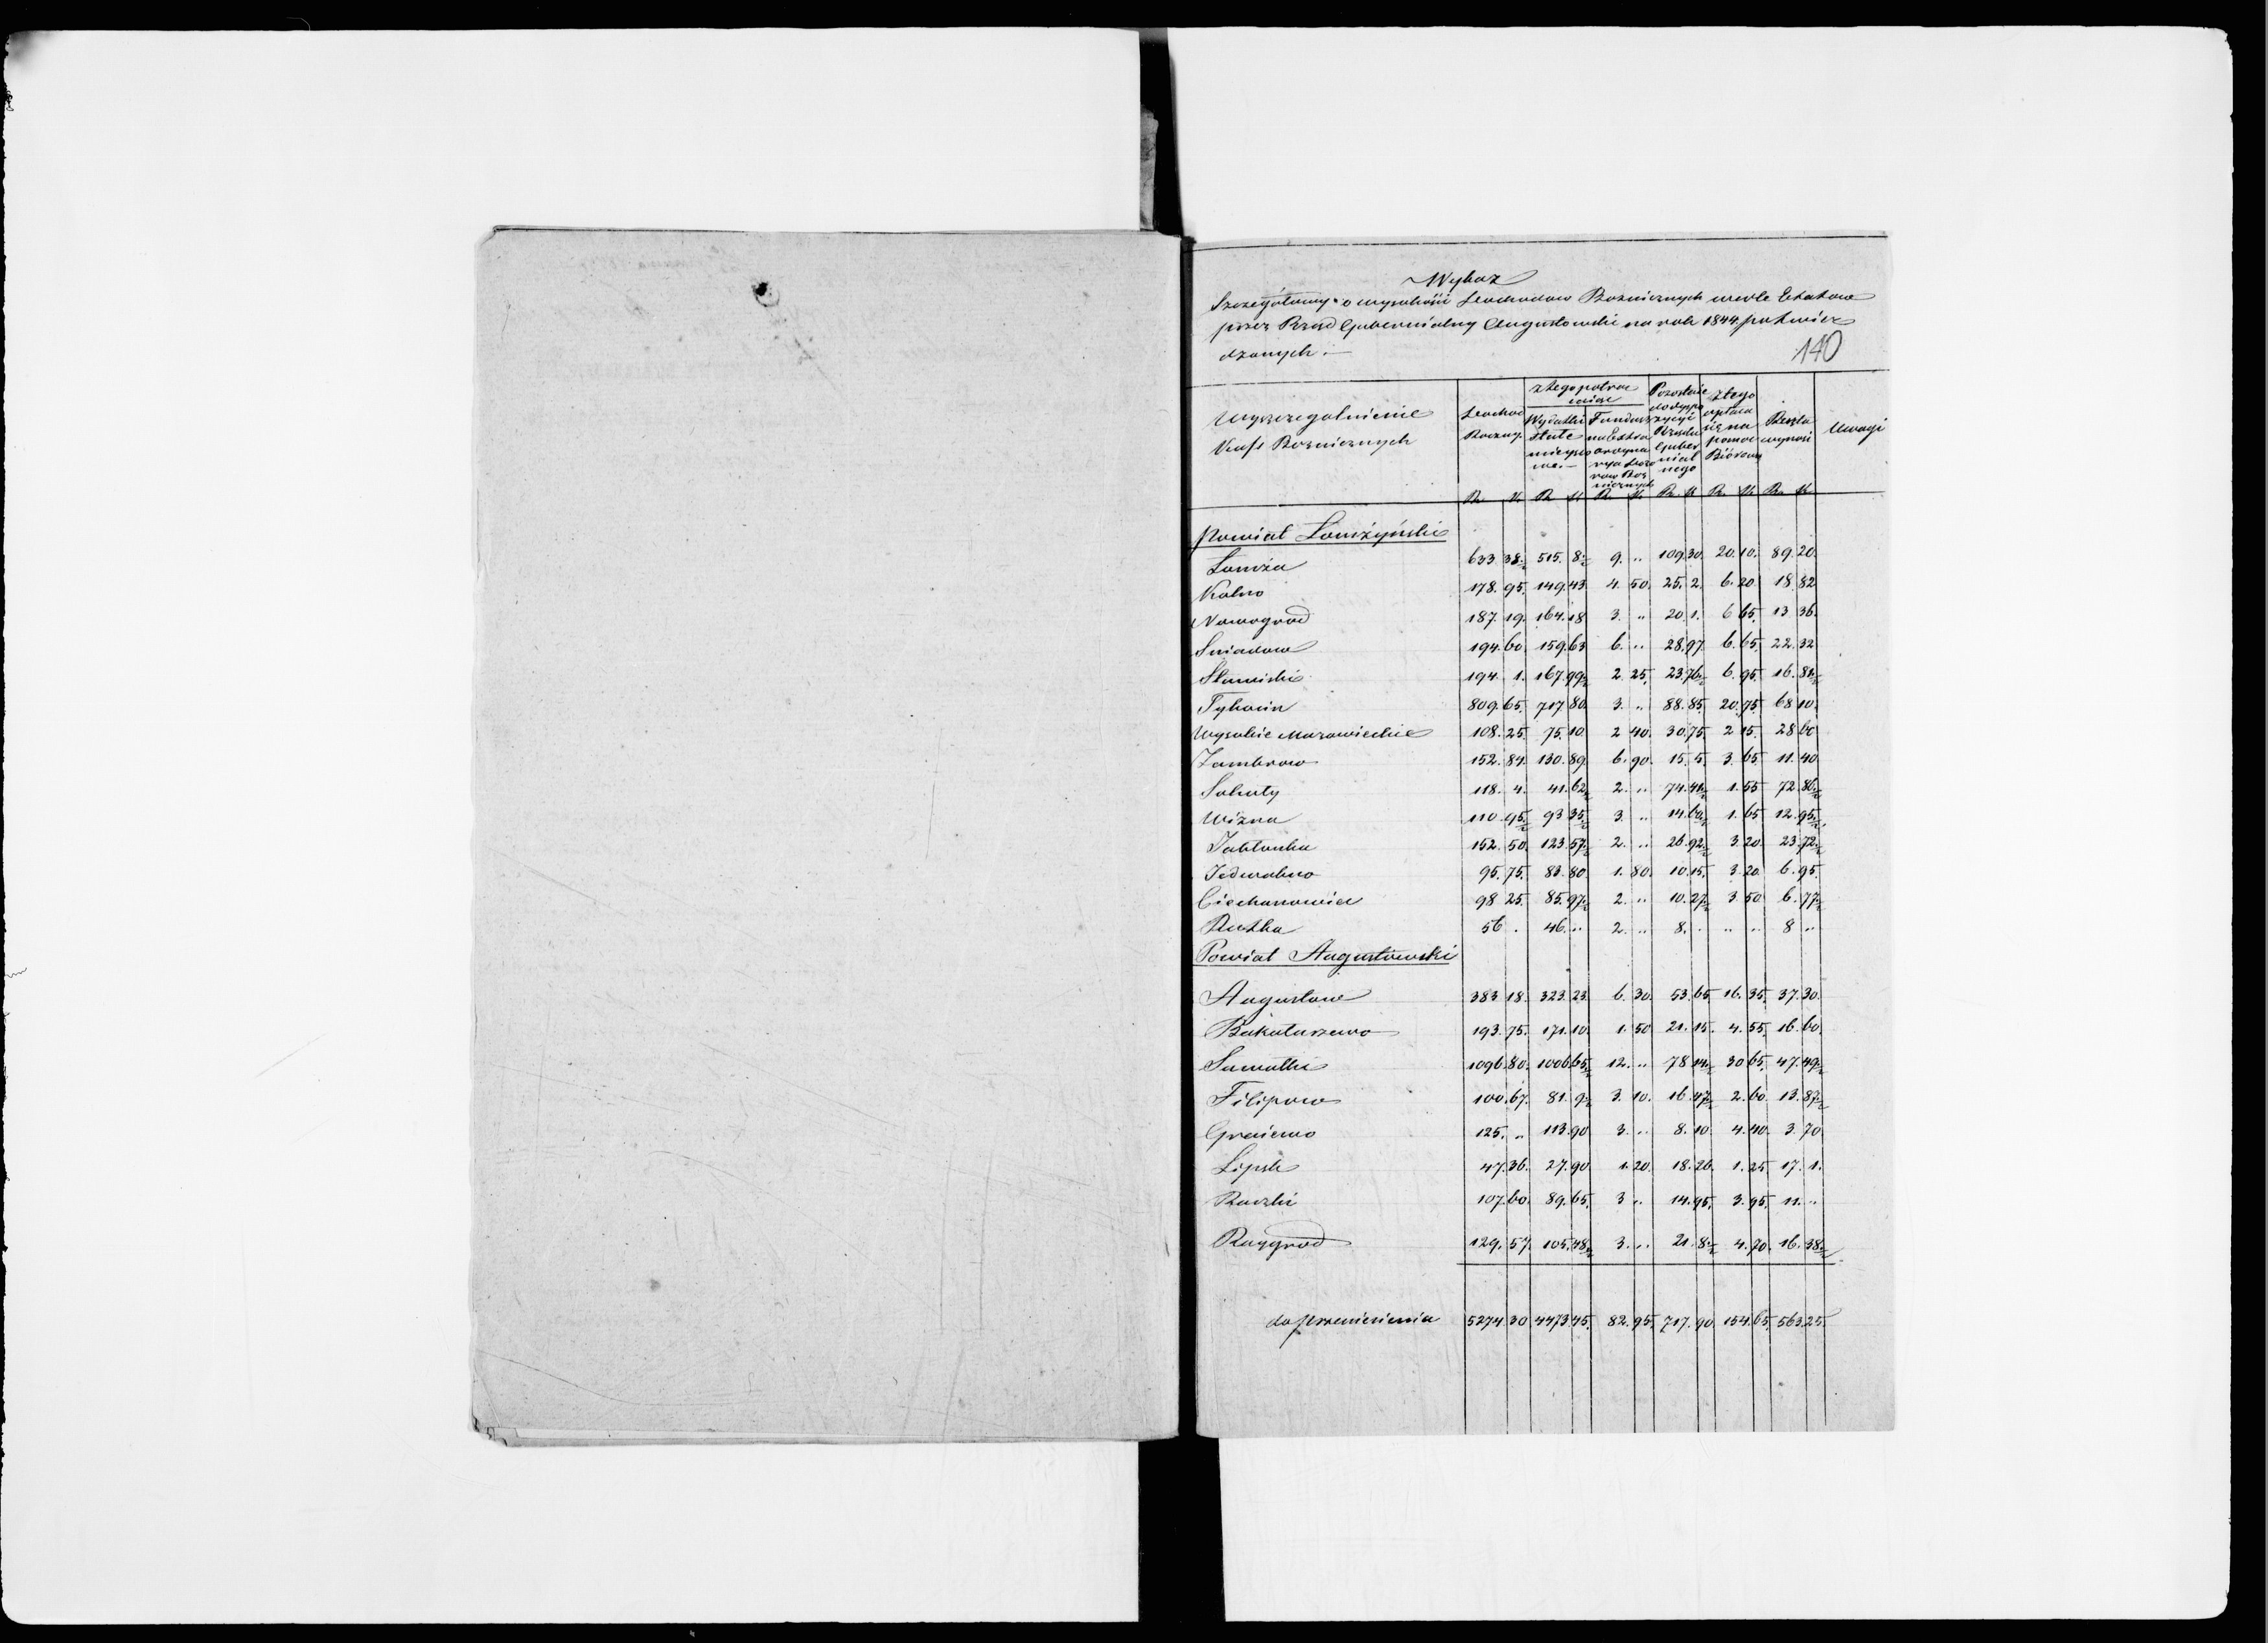 Wykaz
Szczegółowy o wysokości Dochodow Boznicznych wedle Etatow
przez Rząd Gubernialny Augustowski na rok 1844 potwier
dzonych :—
140
Wyszczegolnienie Kass Boznicznych | Dochod Roczny | z tego potrąca | Pozostaie do dyspozycyi Rządu Gubernialnego | z tego opłaca się na pomoc Biórową | Reszta wynosi | Uwagi
Wydatki stałe mieyscowe.— | Fundusz na Extraordynarya Dozorow Bozniczych
R. K. R. K. R. K. R. K. R. K. R. K.
Powiat Łomżyński
Łomża 633 38½ 515. 8½ 9. „ 109 30. 20. 10. 89. 20.
Kolno 178. 95. 149. 43. 4. 50. 25. 2. 6. 20 18 82
Nowogrod 187. 19. 164. 18 3. „ 20 1. 6 65. 13 36.
Sniadow 194. 60. 159. 63 6. „ 28. 97. 6. 65. 22. 32
Stawiski 194. 1. 167. 99½ 2 25. 23. 76½ 6. 95. 16. 81½
Tykocin 809. 65. 717 80. 3. „ 88. 85. 20. 75. 68 10.
Wysokie Mazowieckie 108. 25 75. 10 2 40. 30. 75. 2 15. 28 60
Zambrow 152. 84. 130. 89. 6. 90. 15. 5. 3. 65 11. 40
Sokoły 118. 4. 41. 62½ 2. „ 74. 41½ 1. 55 72. 86½
Wizna 110. 95½ 93 35½ 3. „ 14. 60½ 1. 65 12. 95½
Jabłonka 152. 50. 123. 57½ 2. „ 26. 92½ 3 20. 23. 72½
Jedwabno 95. 75. 83. 80. 1. 80. 10. 15. 3. 20. 6. 95.
Ciechanowiec 98 25. 85. 97½ 2. „ 10. 27½ 3. 50 6. 77½
Rutka 56 . 46. „ 2. „ 8. . „ „ 8 „
Powiat Augustowski
Augustow 383 18. 323. 23. 6. 30. 53. 65. 16. 35. 37. 30.
Bakałarzewo 193. 75. 171. 10. 1. 50 21. 15. 4. 55. 16. 60.
Suwałki 1096. 80. 1006. 65½ 12. „ 78 14½ 30 65. 47. 49½
Filipow 100. 67. 81. 9½ 3. 10. 16. 47½ 2. 60. 13. 87½
Graiewo 125. „ 113. 90 3. „ 8. 10. 4. 40. 3. 70
Lipsk 47. 36. 27. 90 1. 20. 18. 26. 1. 25. 17. 1.
Raczki 107. 60. 89. 65. 3 „ 14. 95. 3. 95. 11. „
Raygrod 129. 57. 105. 48½ 3. „ 21. 8½ 4. 70. 16. 38½
do przeniesienia 5274 30 4473 45. 82. 95. 717. 90 154. 65. 563. 25.